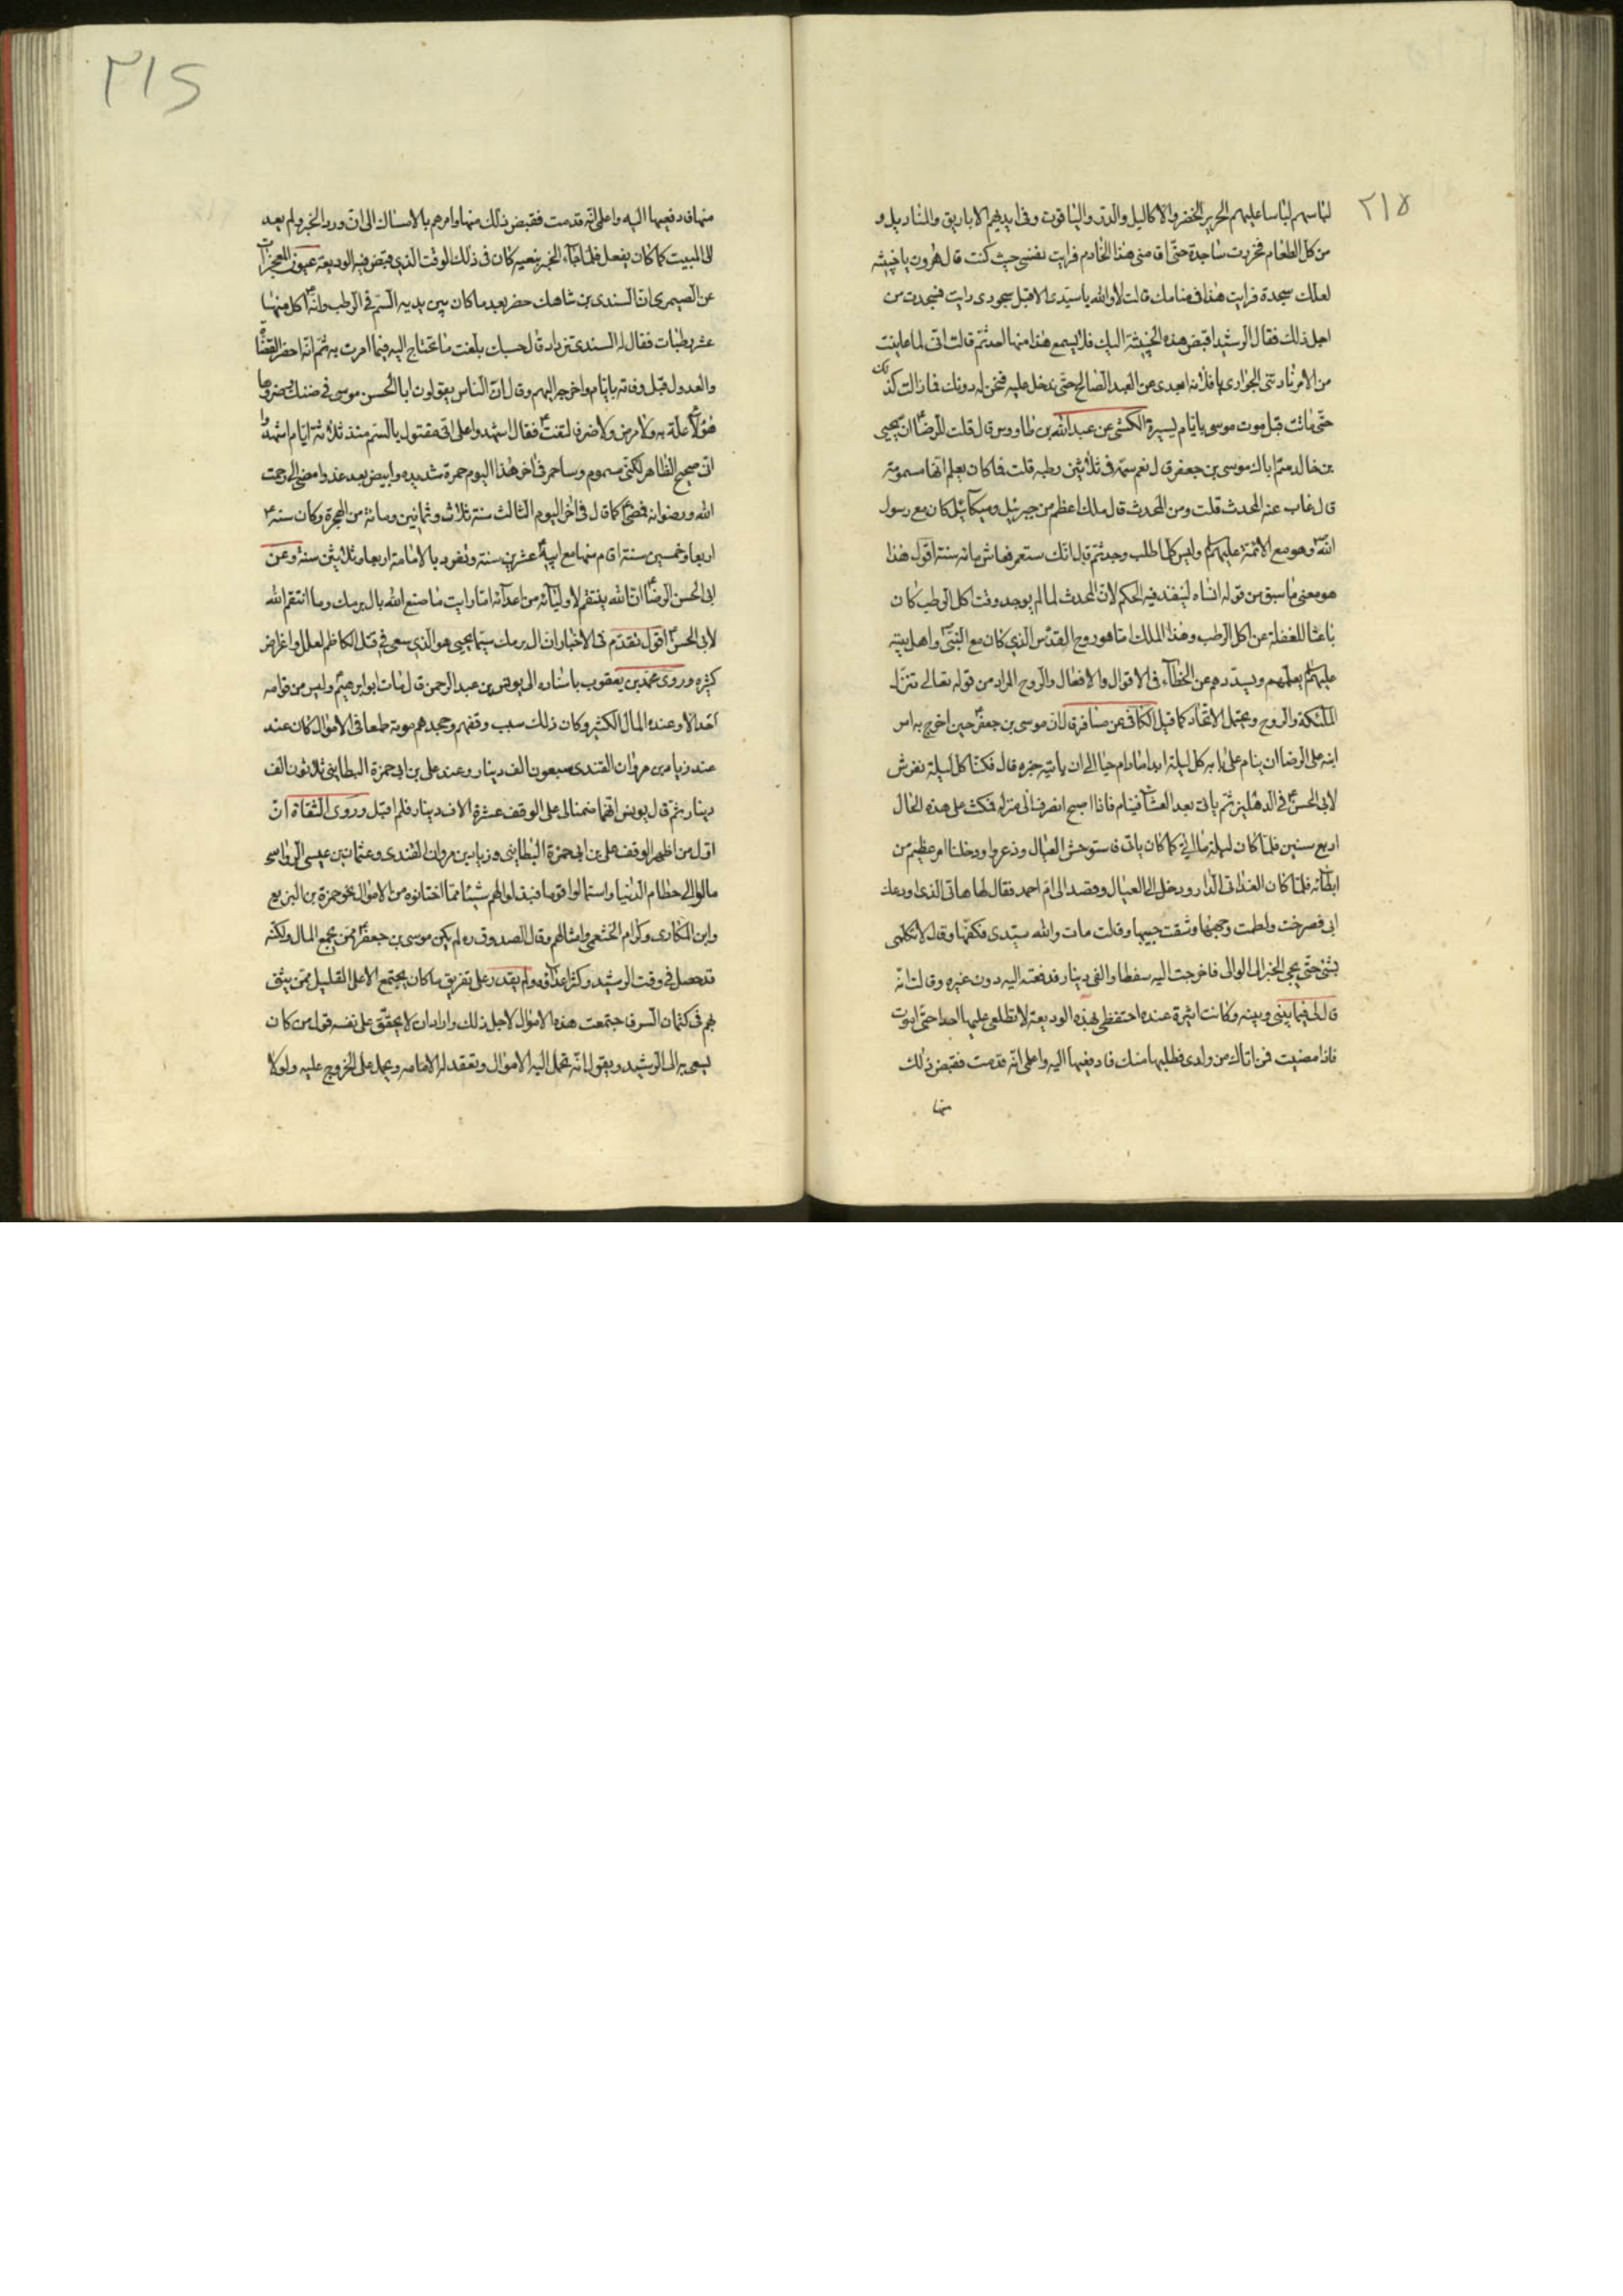 ٢١٥
لباسهم لباسا عليهم الحرير الخضر والاكاليل والدر والياقوت وفى ايديهم الاباريق والمناديل و
من كل الطعام فخررت ساجدة حتى اقامنى هذا الخادم فرايت نفسى حيث كنت قال هرون يا خبيثه
لعلك سجدت فرايت هذا فى منامك قالت لا والله يا سيدى الا قبل سجودى رايت فسجدت من
اجل ذلك فقال الرشيد اقبض هذه الخبيثة اليك فلا يسمع هذا منها احد ثم قالت انى لما عاينت
من الامر نادتنى الجوارى يا فلانه ابعدى عن العبد الصالح حتى ندخل عليه فنحن له دونك فما زالت كذلك
حتى ماتت قبل موت موسى بايام يسيرة الكشى عن عبد الله بن طاووس قال قلت للرضا ان يحيى
بن خالد سم اباك موسى بن جعفر قال نعم سمه فى ثلاثين رطبه قلت فما كان يعلم انها مسمومة
قال غاب عنه المحدث قلت ومن المحدث قال ملك اعظم من جبرئيل وميكائيل كان مع رسول
الله وهو مع الائمة عليهم وليس كلما طلب وجد ثم قال انك ستعمر فعاش مائه سنة اقول هذا
هو معنى ما سبق من قوله انساه لينفذ فيه الحكم لان المحدث لما لم يوجد وقت اكل الرطب كان
باعثا للغفلة عن اكل الرطب وهذا الملك اما هو روح القدس الذى كان مع النبى واهل بيته
عليهم يعلمهم ويسددهم عن الخطاء فى الاقوال والافعال والروح المراد من قوله تعالى تنزل
الملئكة والروح ويحتمل الاتحاد كما قيل الكافى عن مسافر قال ان موسى بن جعفر حين اخرج به امر
ابنه على الرضا ان ينام على بابه كل ليلة ابدا ما دام حيا الى ان ياتيه خبره قال فكنا كل ليلة نفرش
لابى الحسن فى الدهليز ثم ياتى بعد العشاء فينام فاذا اصبح انصرف الى منزله فمكث على هذه الحال
اربع سنين فلما كان ليلة من الليالى كما كان ياتى فاستوحش العيال وذعروا ودخلنا امر عظيم من
ابطائه فلما كان الغد اتى الدار ودخل الى العيال وقصد الى ام احمد فقال لها هاتى الذى اودعك
ابى فصرخت ولطمت وجهها وشقت جيبها وقالت مات والله سيدى فكفها وقال لا تكلمى
بشئ حتى يجئ الخبر الى الوالى فاخرجت اليه سفطا والفى دينار فدفعته اليه دون غيره وقالت انه
قال لى فيما بينى وبينه وكانت اثيرة عنده احتفظى بهذه الوديعة لا تطلعى عليها احدا حتى اموت
فاذا مضيت فمن اتاك من ولدى فطلبها منك فادفعيها اليه واعلمى انه قد مت فقبض ذلك
منها
٢١٥
منها فادفعيها اليه واعلمى انه قد مت فقبض ذلك منها وامرهم بالامساك الى ان ورد الخبر ولم يعد
الى المبيت كما كان يفعل فلما جاء الخبر بنعيه كان فى ذلك الوقت الذى قبض فيه الوديعة عيون المعجزات
عن الصيمرى ان السندى بن شاهك حضر بعد ما كان بين يديه السم فى الرطب وانه اكل منها
عشر رطبات فقال له السندى تزداد قال حسبك بلغت ما تحتاج اليه فيما امرت به ثم انه احضر القضاة
والعدول قبل وفاته بايام واخرجه اليهم وقال ان الناس يقولون ابا الحسن موسى فى ضنك وضر وها
هو لا علة به ولا مرض ولا ضر فالتفت فقال اشهدوا على انى مقتول بالسم منذ ثلاثة ايام اشهدوا
انى صحيح الظاهر لكنى مسموم وساحمر فى اخر هذا اليوم حمرة شديدة وابيض بعد غد وامضى الى رحمت
الله ورضوانه فمضى كما قال فى اخر اليوم الثالث سنة ثلاث وثمانين ومائة من الهجرة وكان سنه
اربعا وخمسين سنة اقام منها مع ابيه عشرين سنة وتفرد بالامامة اربعا وثلاثين سنة وعن
ابى الحسن الرضا ان الله ينتقم لاوليائه من اعدائه اما رايت ما صنع الله بال برمك وما انتقم الله
لابى الحسن اقول تقدم فى الاخبار ان ال برمك سيما يحيى هو الذى سعى فى قتل الكاظم لعلل واغراض
كثيره وروى محمد بن يعقوب باسناده الى يونس بن عبد الرحمن قال مات ابو ابراهيم وليس من قوامه
احد الا وعنده المال الكثير وكان ذلك سبب وقفهم وجحدهم موته طمعا فى الاموال كان عند
عند زياد بن مروان القندى سبعون الف دينار وعند على بن ابى حمزة البطاينى ثلاثون الف
دينار ثم قال يونس انهما ضمنا لى على الوقف عشرة الاف دينار فلم اقبل وروى الثقاة ان
اول من اظهر الوقف على بن ابى حمزة البطاينى وزياد بن مروان القندى وعثمان بن عيسى الرواسى
مالوا الى حطام الدنيا واستمالوا قوما فبذلوا لهم شيئا مما اختانوه من الاموال نحو حمزة بن البزيع
وابن المكارى وكرام الخثعمى وامثالهم وقال الصدوق ره لم يكن موسى بن جعفر ممن يجمع المال ولكنه
قد حصل فى وقت الرشيد وكثر اعداؤه ولم يقدر على تفريق ما كان يجتمع الا على القليل ممن يثق
بهم فى كتمان السر فاجتمعت هذه الاموال لاجل ذلك واراد ان لا يحقق على نفسه قول من كان
يسعى به الى الرشيد ويقول انه تحمل اليه الاموال وتعقد له الامامه ويحمل على الخروج عليه ولولا